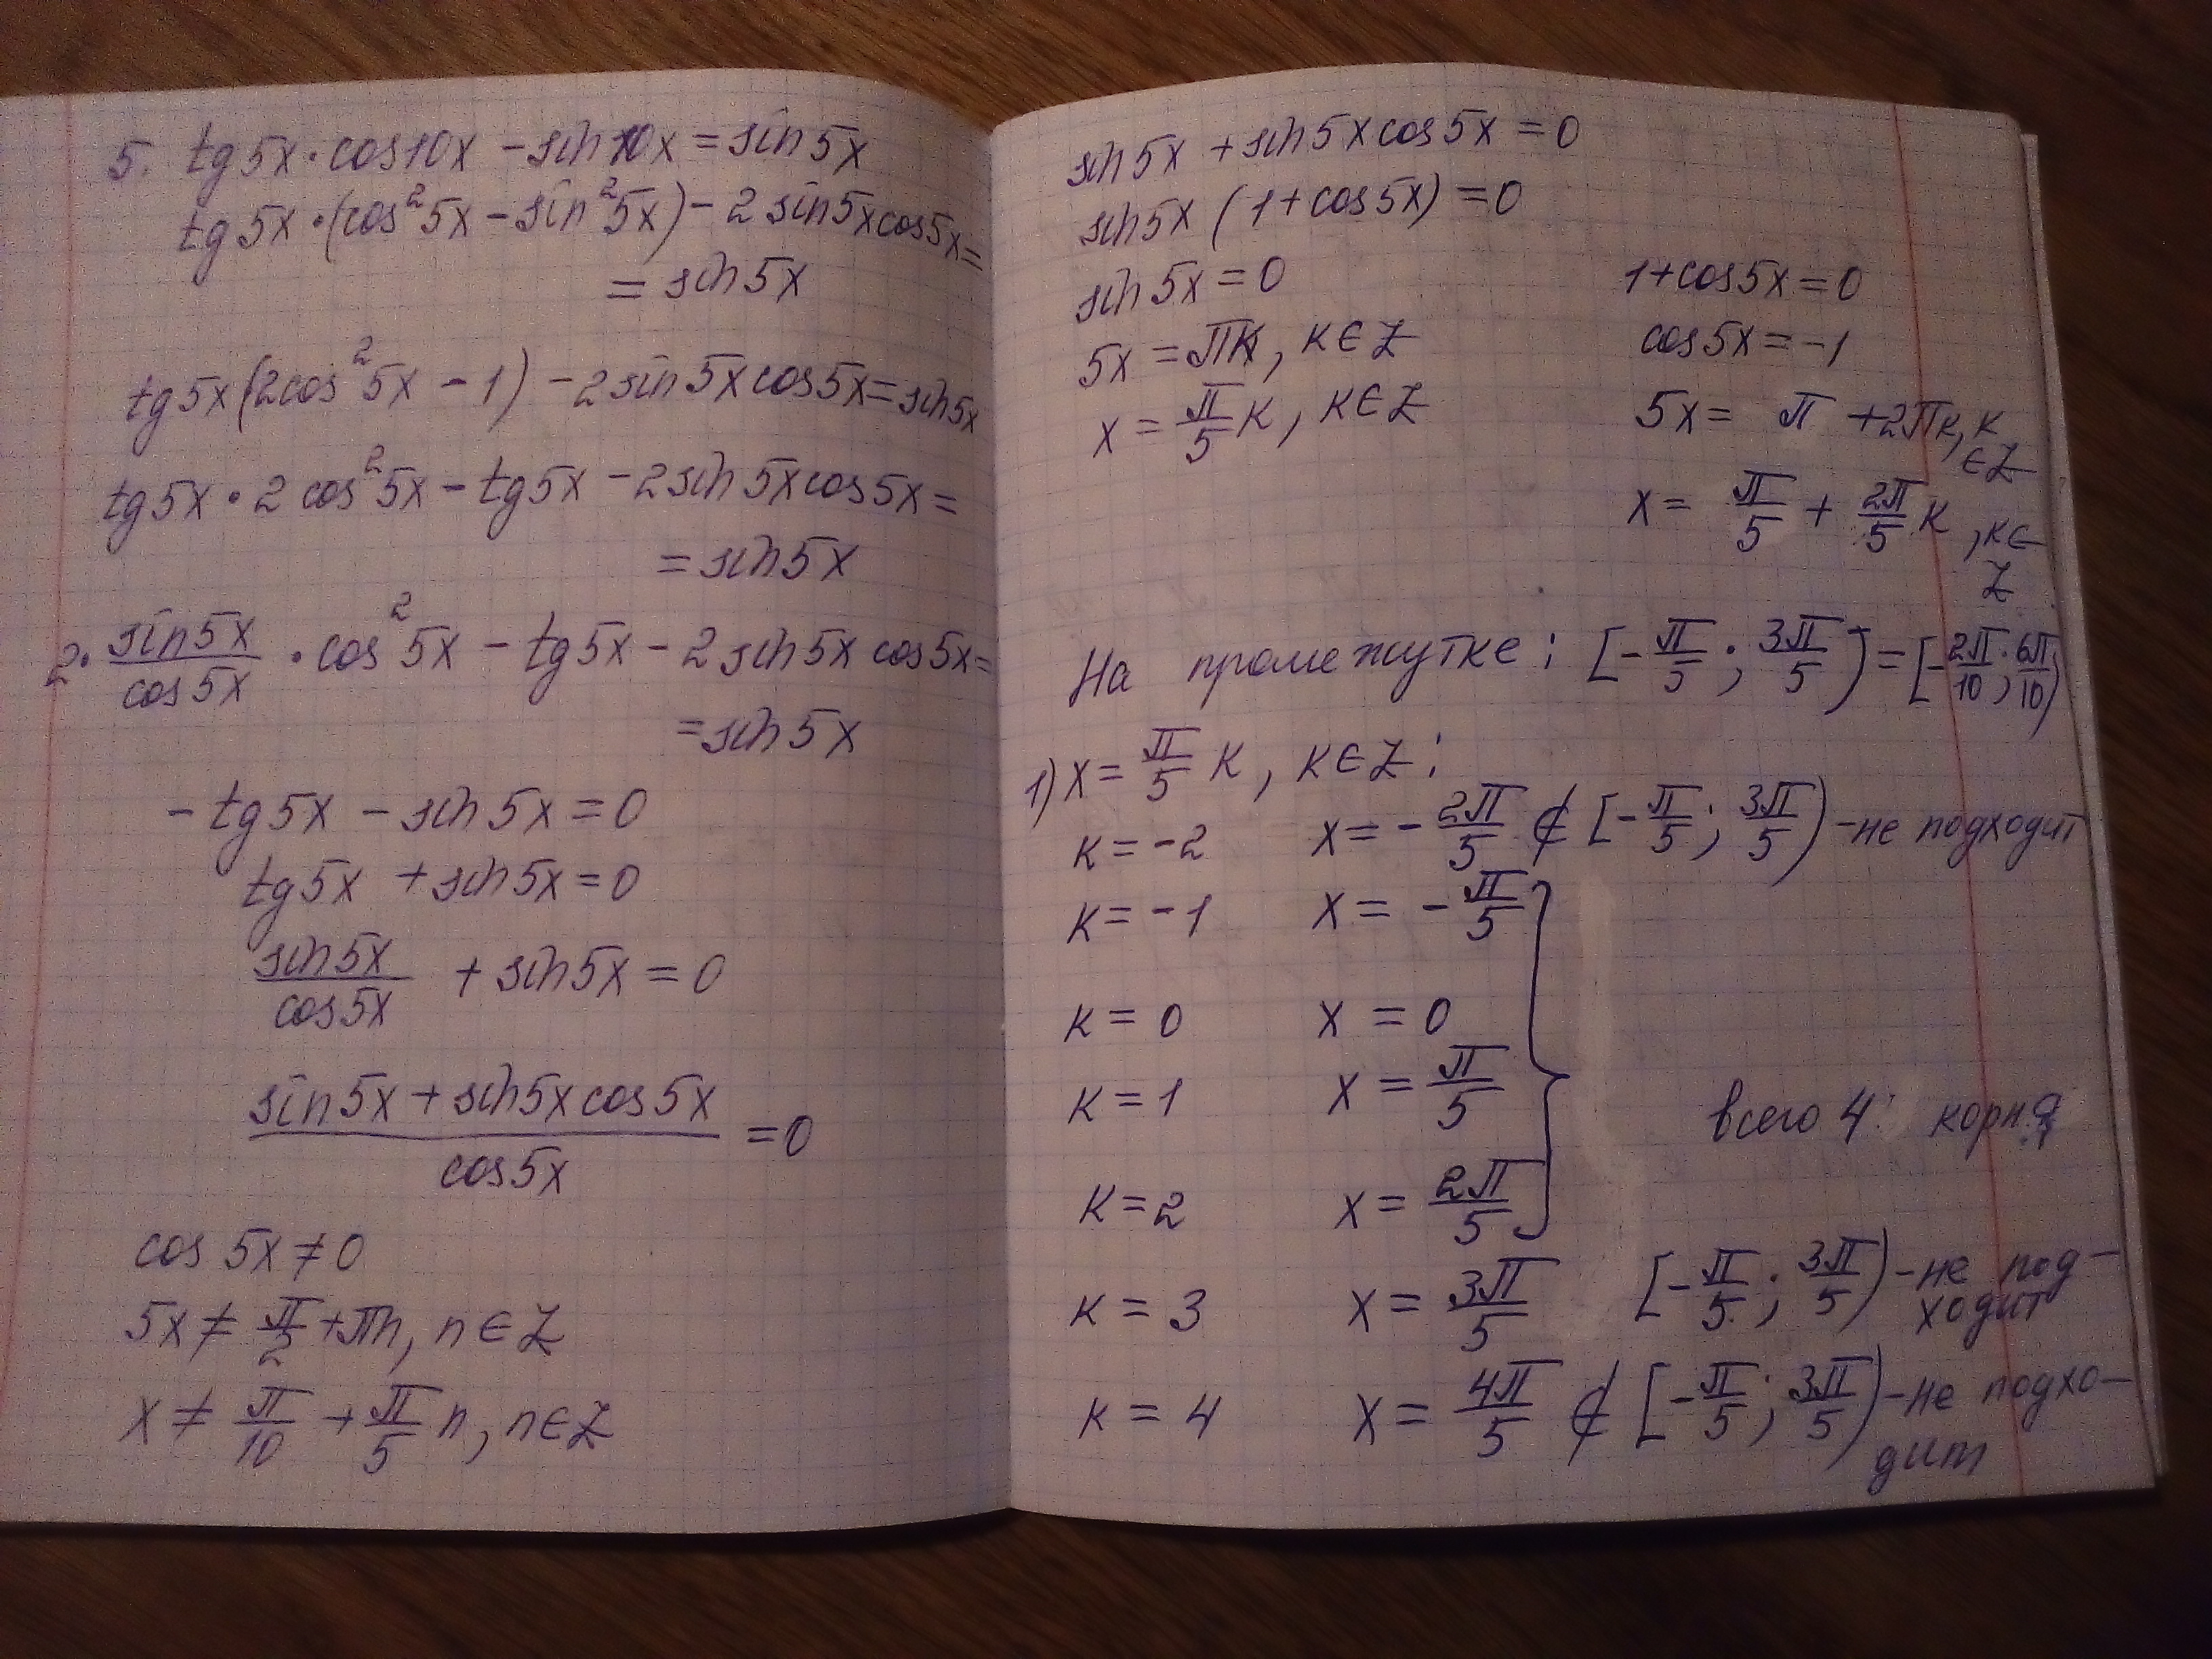 5. tg5x·cos10x - sin10x = sin5x
tg5x·(cos²5x - sin²5x) - 2sin5xcos5x =
= sin5x
tg5x(2cos²5x - 1) - 2sin5xcos5x = sin5x
tg5x·2cos²5x - tg5x - 2sin5xcos5x =
= sin5x
2·\frac{sin5x}{cos5x}·cos²5x - tg5x - 2sin5xcos5x =
= sin5x
-tg5x - sin5x = 0
tg5x + sin5x = 0
\frac{sin5x}{cos5x} + sin5x = 0
\frac{sin5x + sin5xcos5x}{cos5x} = 0
cos5x ≠ 0
5x ≠ \frac{π}{2} + πn, n ∈ Z
x ≠ \frac{π}{10} + \frac{π}{5}n, n ∈ Z
sin5x + sin5xcos5x = 0
sin5x(1 + cos5x) = 0
sin5x = 0
5x = πк, к ∈ Z
x = \frac{π}{5}к, к ∈ Z
1 + cos5x = 0
cos5x = -1
5x = π + 2πк, к
∈ Z
x = \frac{π}{5} + \frac{2π}{5}к, к ∈
Z
На промежутке: [-\frac{π}{5}; \frac{3π}{5}) = [-\frac{2π}{10}; \frac{6π}{10})
1) x = \frac{π}{5}к, к ∈ Z:
к = -2 x = -\frac{2π}{5} ∉ [-\frac{π}{5}; \frac{3π}{5}) - не подходит
к = -1 x = -\frac{π}{5}
к = 0 x = 0
к = 1 x = \frac{π}{5}
всего 4 корня
к = 2 x = \frac{2π}{5}
к = 3 x = \frac{3π}{5} [-\frac{π}{5}; \frac{3π}{5}) - не под-
ходит
к = 4 x = \frac{4π}{5} ∉ [-\frac{π}{5}; \frac{3π}{5}) - не подхо-
дит